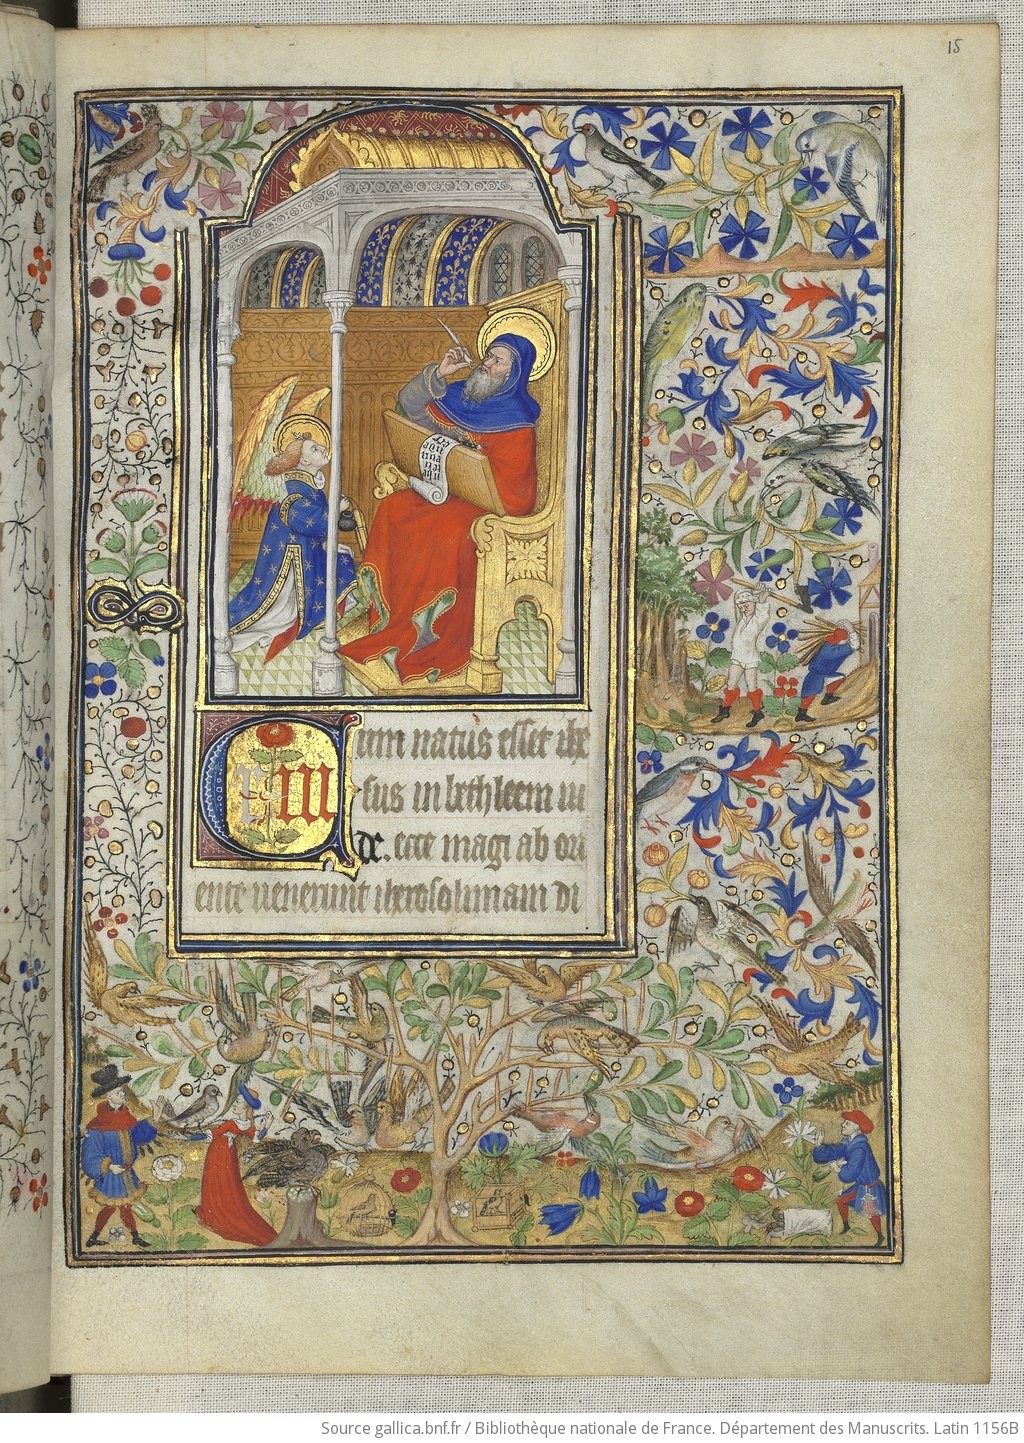 15
um natus esset ihe
sus in bethleem iu
de. ecce magi ab ori
ente uenerunt iherosolimam di
Source gallica.bnf.fr / Bibliothèque nationale de France. Département des Manuscrits. Latin 1156B